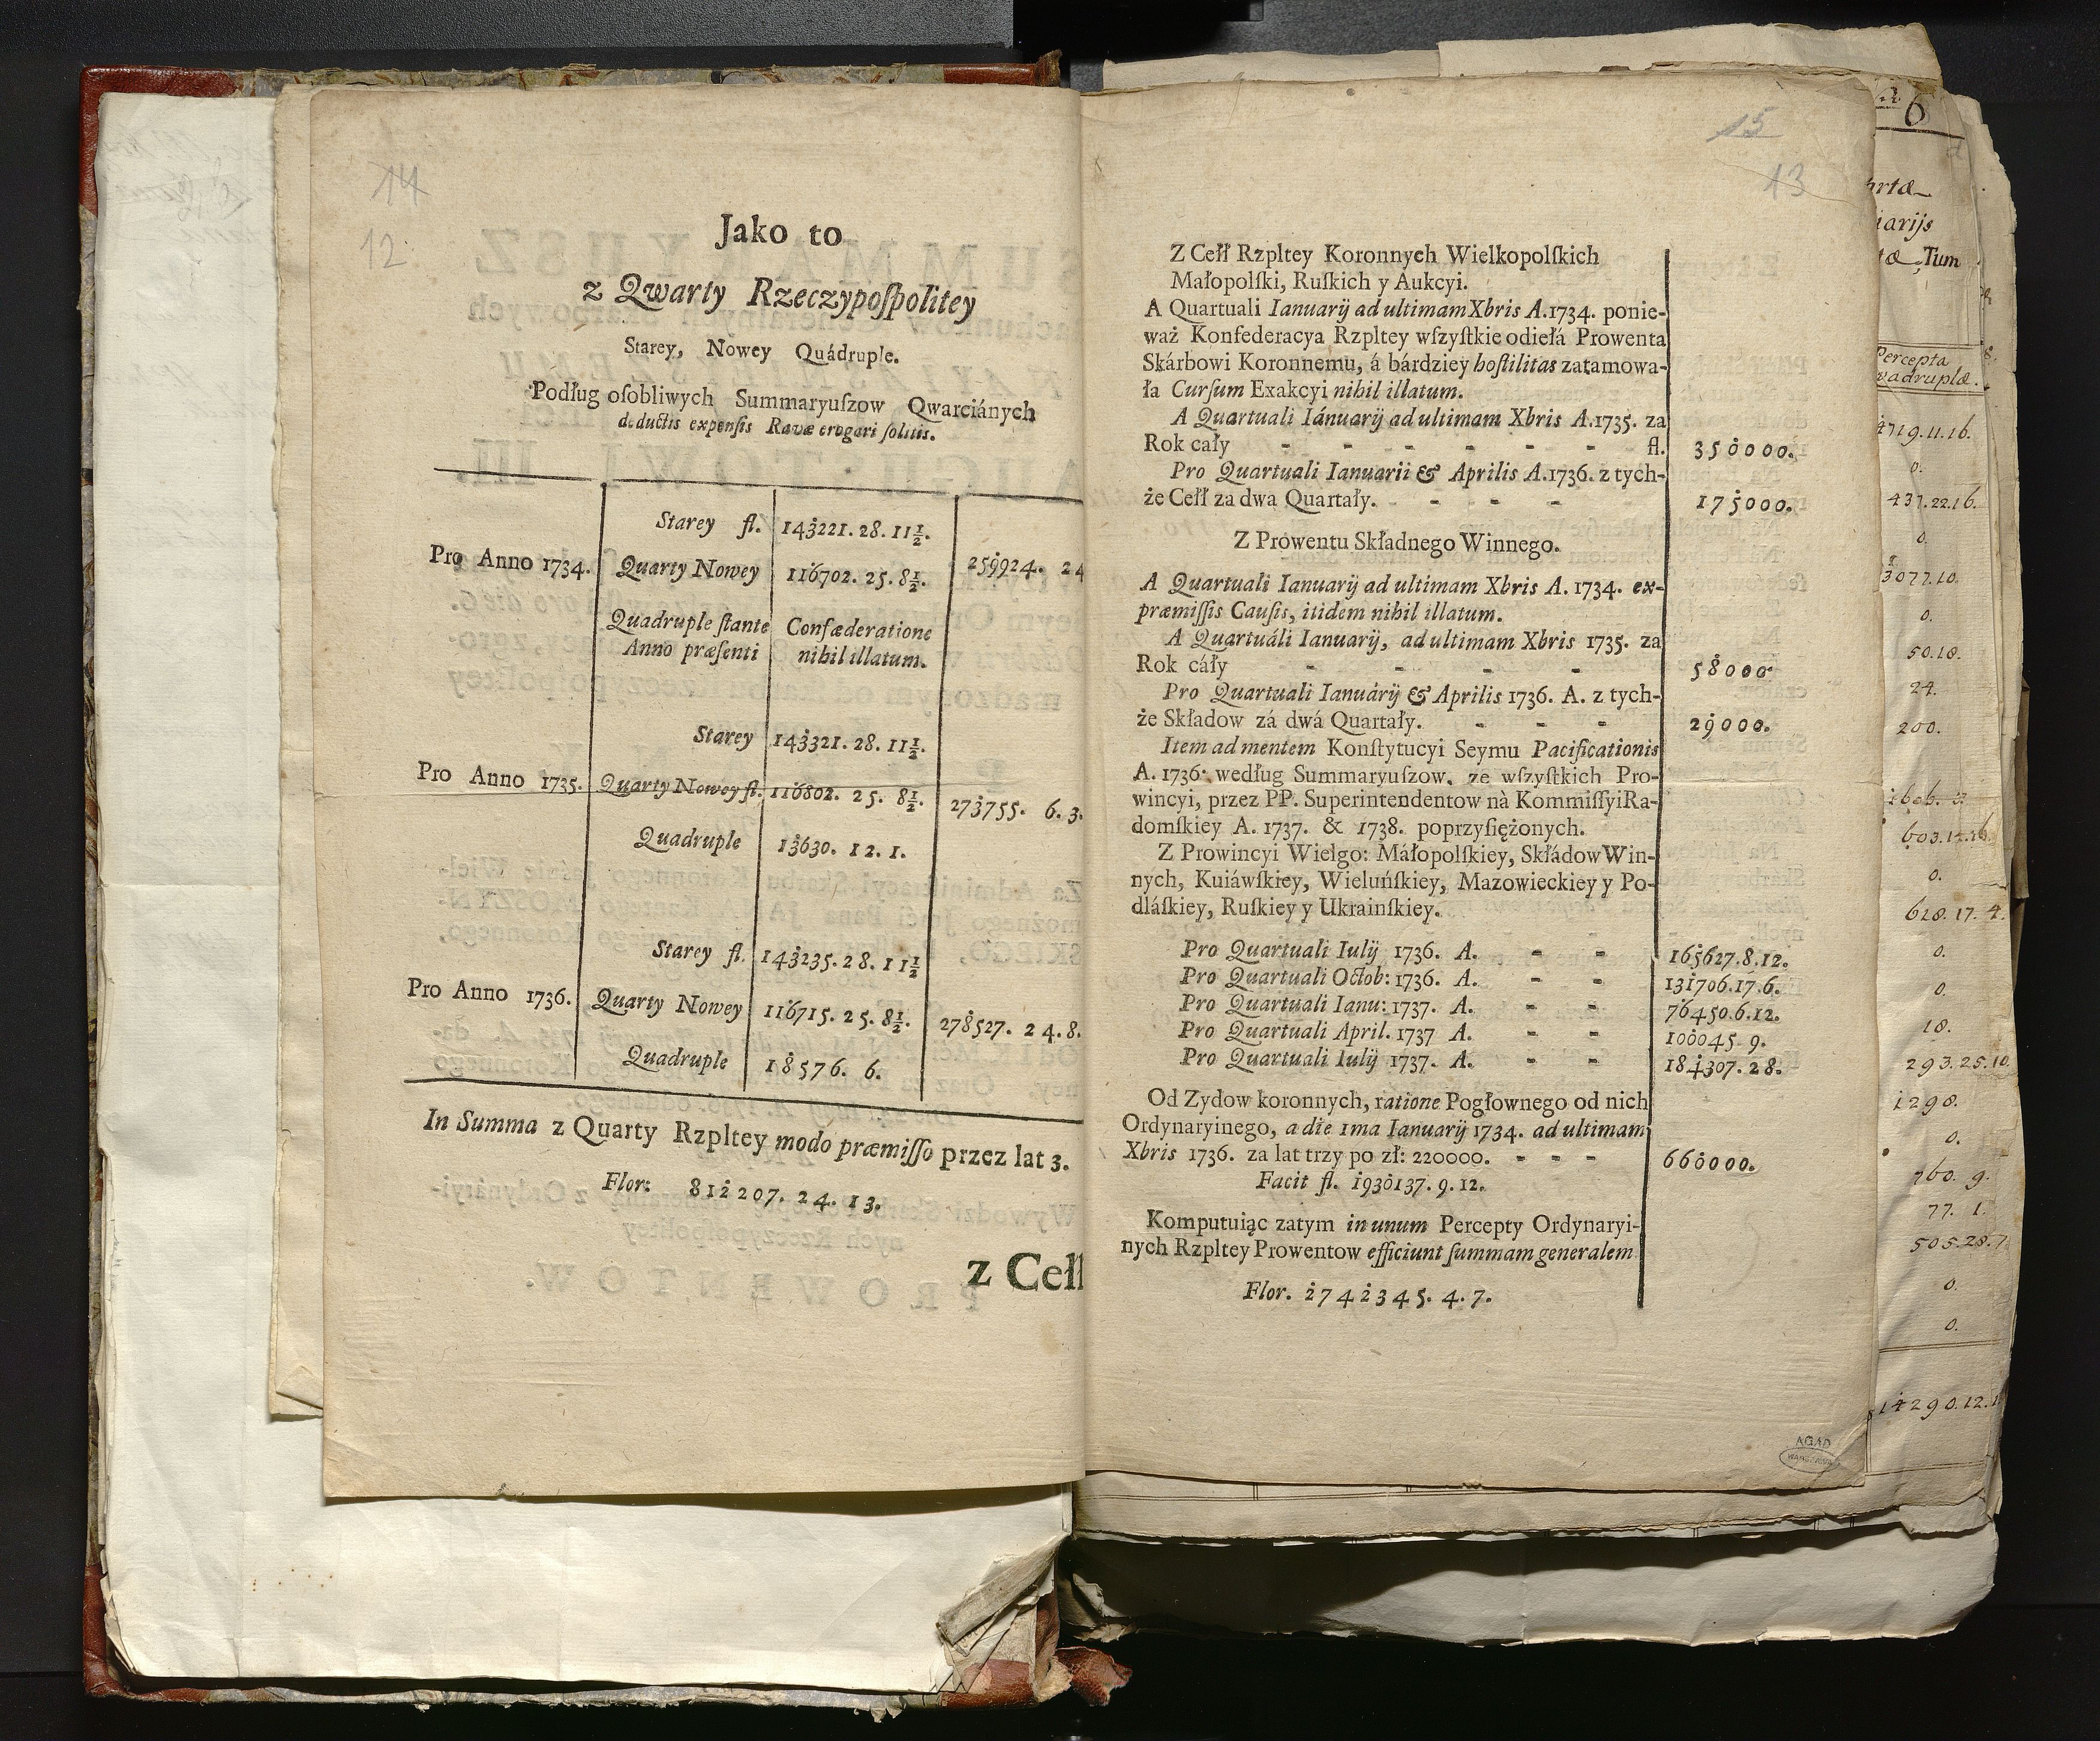 14
12
Jako to
z Qwarty Rzeczypoſpolitey
Starey, Nowey Quádruple.
Podług oſobliwych Summaryuſzow Qwarciánych
deductis expenſis Ravæ erogari ſolitis.
Pro Anno 1734.
Starey fl. 143221. 28. 11½.
Quarty Nowey 116702. 25. 8½.
259924. 24
Quadruple ſtante Confæderatione
Anno præſenti nihil illatum.
Starey 143321. 28. 11½.
Pro Anno 1735. Quarty Nowey fl. 116802. 25. 8½.
273755. 6. 3.
Quadruple 13630. 12. 1.
Starey fl. 143235. 28. 11½
Pro Anno 1736. Quarty Nowey 116715. 25. 8½.
278527. 24. 8.
Quadruple 18576. 6.
In Summa z Quarty Rzpltey modo præmiſſo przez lat 3.
Flor: 812207. 24. 13.
z Cełł
15
13
Z Cełł Rzpltey Koronnych Wielkopolſkich
Małopolſki, Ruſkich y Aukcyi.
A Quartuali Ianuarij ad ultimam Xbris A.1734. ponie-
waż Konfederacya Rzpltey wſzyſtkie odiełá Prowenta
Skárbowi Koronnemu, á bárdziey hoſtilitas zatamowa-
ła Curſum Exakcyi nihil illatum.
A Quartuali Iánuarij ad ultimam Xbris A.1735. za
Rok cały - - - - - - fl. 350000.
Pro Quartuali Ianuarii & Aprilis A.1736. z tych-
że Cełł za dwa Quartały. - - - 175000.
Z Prowentu Składnego Winnego.
A Quartuali Ianuarij ad ultimam Xbris A. 1734. ex-
præmiſſis Cauſis, itidem nihil illatum.
A Quartuáli Ianuarij, ad ultimam Xbris 1735. za
Rok cáły - - - - 58000
Pro Quartuali Ianuárij & Aprilis 1736. A. z tych-
że Składow zá dwá Quartały. - - - 29000.
Item ad mentem Konſtytucyi Seymu Pacificationis
A. 1736. według Summaryuſzow. ze wſzyſtkich Pro-
wincyi, przez PP. Superintendentow nà KommiſſyiRa-
domſkiey A. 1737. & 1738. poprzyſiężonych.
Z Prowincyi Wielgo: Máłopolſkiey, SkłádowWin-
nych, Kuiáwſkiey, Wieluńſkiey, Mazowieckiey y Po-
dláſkiey, Ruſkiey y Ukrainſkiey.
Pro Quartuali Iulij 1736. A. - - 165627.8.12.
Pro Quartuali Octob: 1736. A. - - 131706.17.6.
Pro Quartuali Ianu: 1737. A. - - 76450.6.12.
Pro Quartuali April. 1737 A. - - 100045. 9.
Pro Quartuali Iulij 1737. A. - - 184307. 28.
Od Zydow koronnych, ratione Pogłownego od nich
Ordynaryinego, a die 1ma Ianuarij 1734. ad ultimam
Xbris 1736. za lat trzy po zł: 220000. - - - 660000.
Facit fl. 1930137. 9. 12.
Komputuiąc zatym in unum Percepty Ordynaryi-
nych Rzpltey Prowentow efficiunt ſummam generalem
Flor. 2742345. 4. 7.
AGAD
WARSZAWA
6
Tum
Percepta
4719.11.16.
0.
437.22.16.
0.
3077.10.
0.
50.18.
24.
200.
603.12.16.
0.
628.17.4.
0.
0.
18.
293.25.10.
1298.
0.
760. 9.
77. 1.
505.28.7
0.
0.
14290.12.1